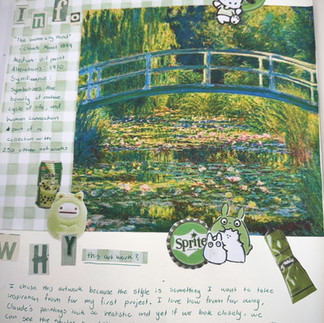 Info
"The water lily Pond"
- Claude Monet 1899
Medium: oil paint
Symbolises the
beauty of nature
cycle of life, and
human connection
part of a
collection with
250 other art works
WHY
this art work?
Sprite
I chose this artwork because the style is something I want to take
inspiration from for my first project. I love how from far away,
Claude's paintings look so realistic and yet if we look closely, we
can see the